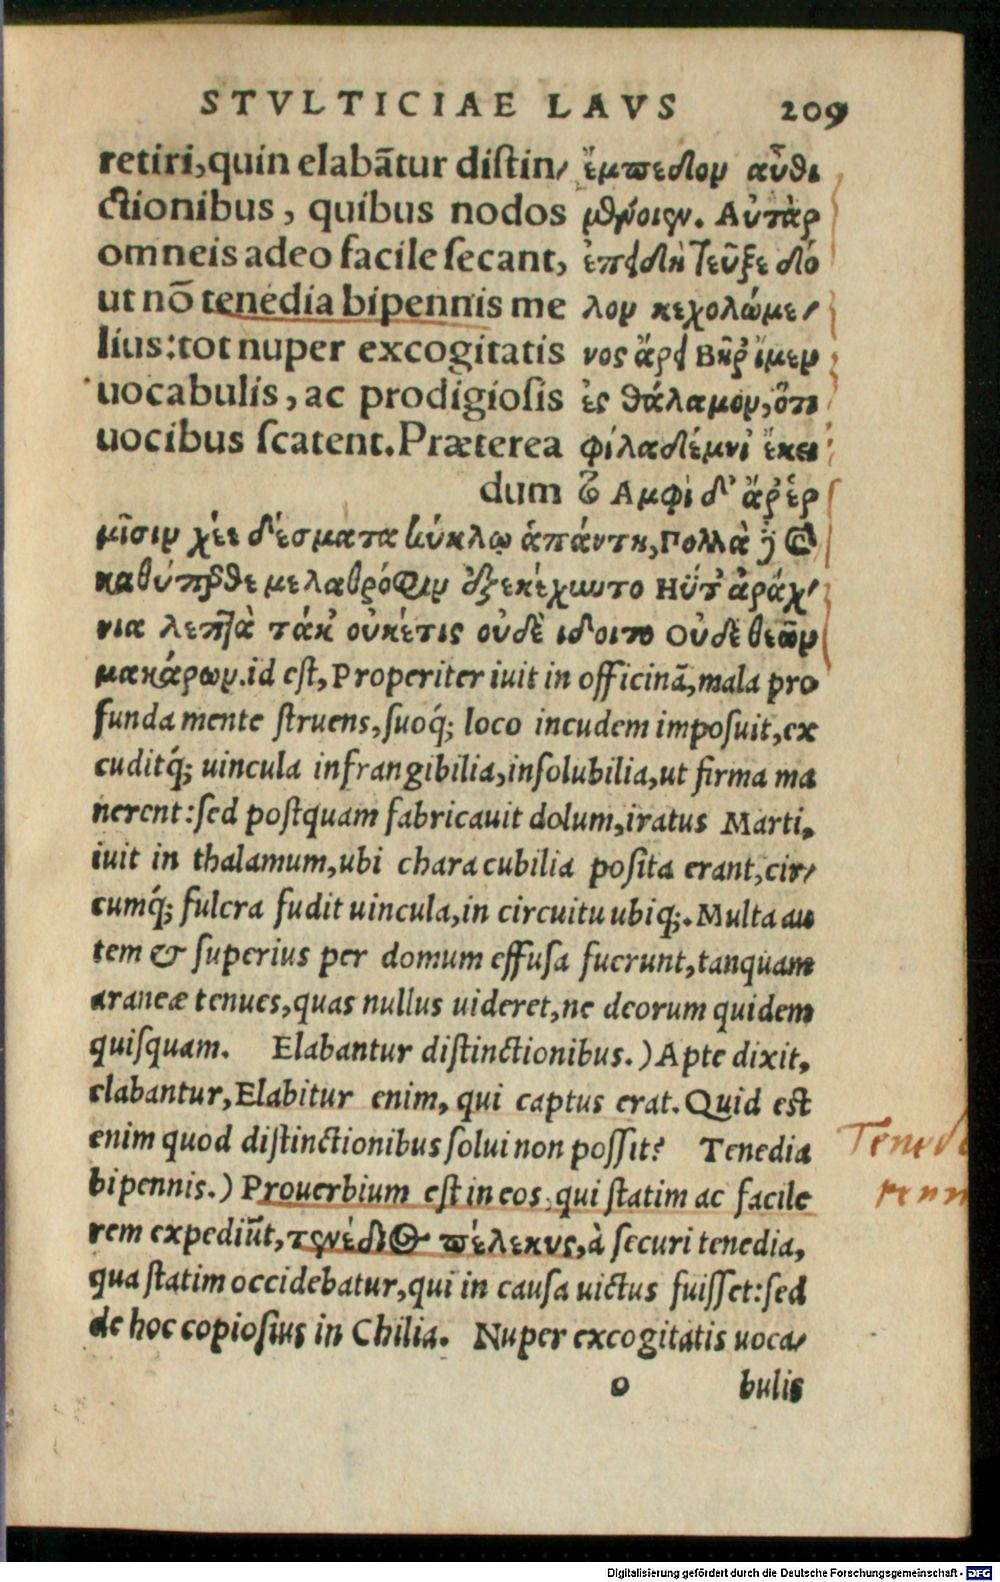 STVLTICIAE LAVS 209
retiri,quin elabãtur distin/
ctionibus, quibus nodos
omneis adeo facile secant,
ut nõ tenedia bipennis me
lius:tot nuper excogitatis
uocabulis, ac prodigiosis
uocibus scatent.Præterea
dum
ἔμπεδον αὖθι
μένοιεν. Αὐτὰρ
ἐπειδὴ τεῦξε δό
λον κεχολώμε/
νος ἄρει Βῆῥ ἴμεν
ἐς θάλαμον, ὅτι
φίλα δέμνἰ ἔκει
το Αμφὶ δ' ἄῤ ἑρ
μῖσιν χέε δέσματα κύκλῳ ἁπάντη,Πολλὰ
καθύπερθε μελαθρόφιν ἐξεκέχυντο Ηΰτ' ἀράχ/
νια λεπτὰ τάκ' οὐκέτις οὐδὲ ιδοιτο Οὐδὲ θεῶν
μακάρων.id est,Properiter iuit in officinã,mala pro
funda mente struens,suoq́; loco incudem imposuit,ex
cuditq́; uincula infrangibilia,insolubilia,ut firma ma
nerent:sed postquam fabricauit dolum,iratus Marti,
iuit in thalamum,ubi chara cubilia posita erant,cir/
cumq́; fulcra fudit uincula,in circuitu ubiq;.Multa au
tem & superius per domum effusa fuerunt,tanquam
araneæ tenues,quas nullus uideret,ne deorum quidem
quisquam. Elabantur distinctionibus.) Apte dixit,
elabantur,Elabitur enim, qui captus erat. Quid est
enim quod distinctionibus solui non possit? Tenedia
bipennis.) Prouerbium est in eos, qui statim ac facile
rem expediũt,τενέδιος πέλεκυς,à securi tenedia,
qua statim occidebatur,qui in causa uictus fuisset:sed
de hoc copiosius in Chilia. Nuper excogitatis uoca/
o bulis
Digitalisierung gefördert durch die Deutsche Forschungsgemeinschaft - DFG